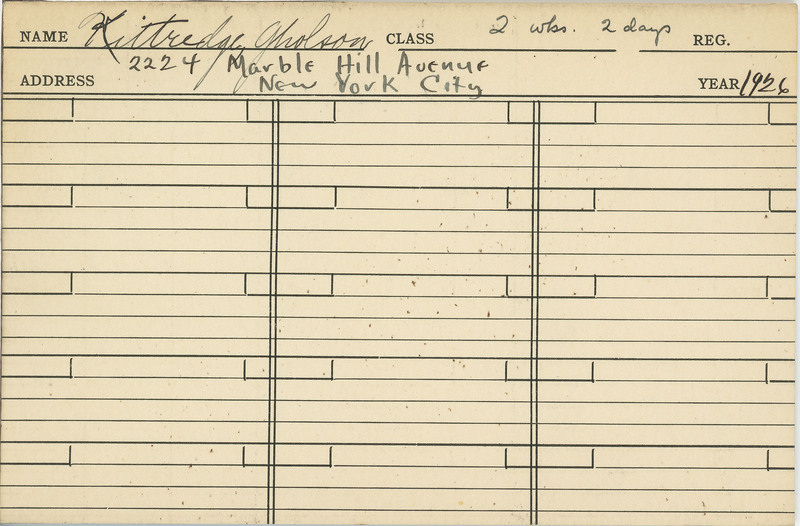 NAME Kittredge, Gholson CLASS 2 wks. 2 days REG.
2224 Marble Hill Avenue
ADDRESS New York City YEAR 1926